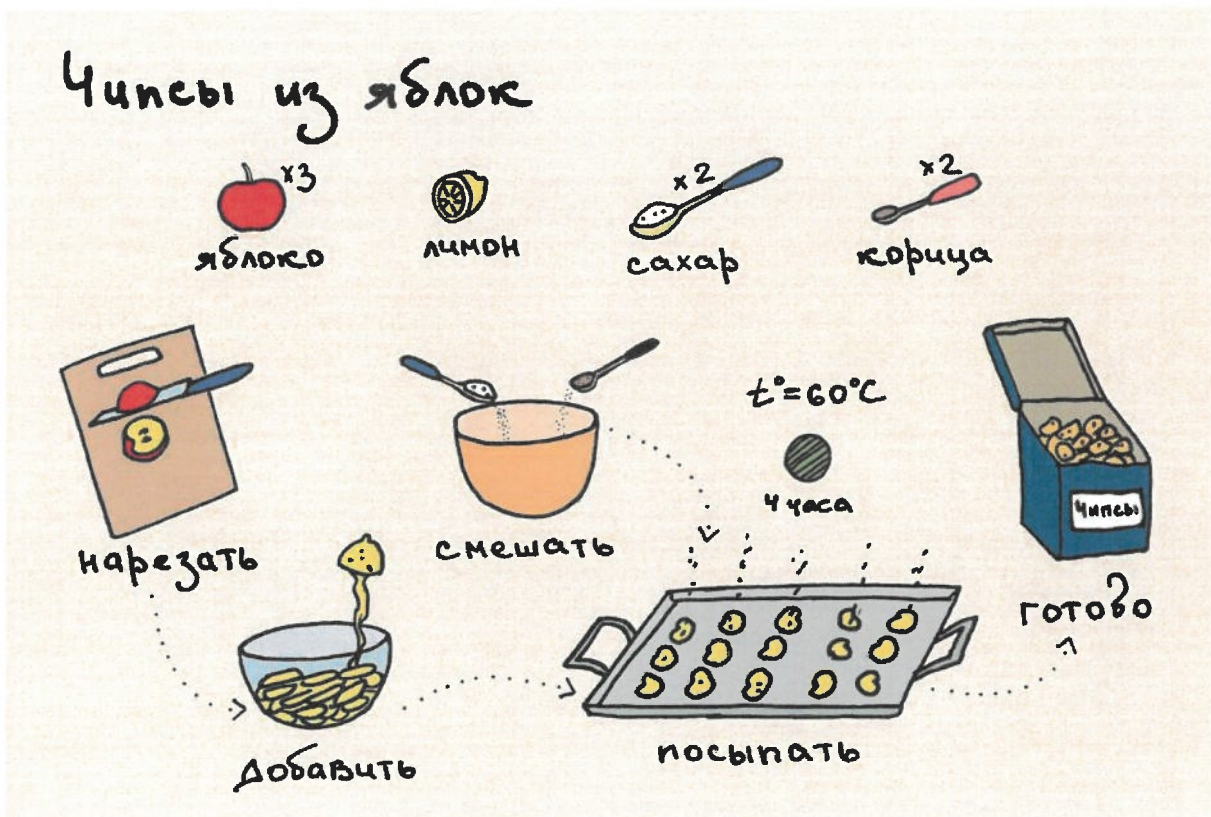 Чипсы из яблок
x3
яблоко
лимон
x2
сахар
x2
корица
нарезать
смешать
t°=60°C
4 часа
Чипсы
готово
добавить
посыпать